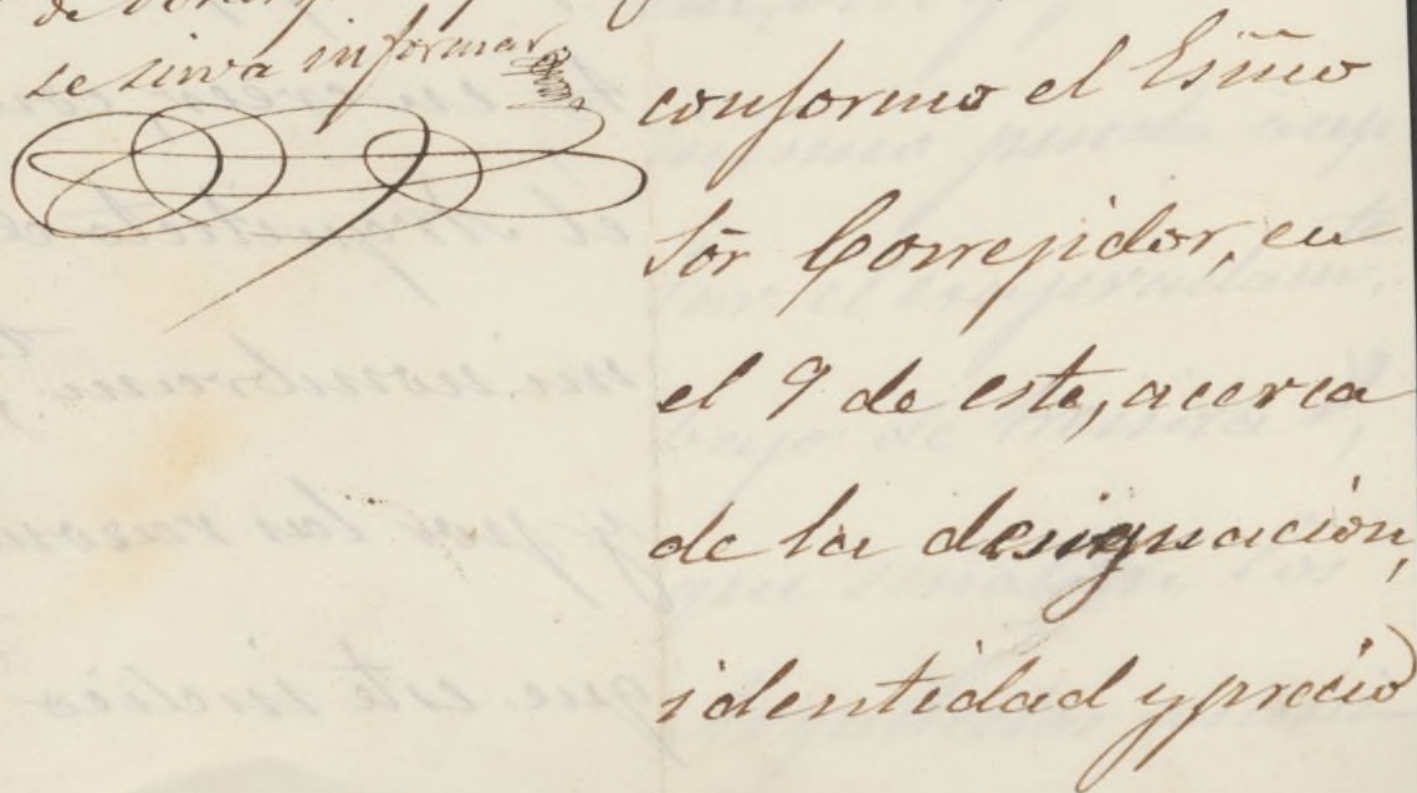 se sirva informar
conformo el Esmo
Sor Correjidor, en
el 9 de este, acerca
de la designación,
identidad y precio